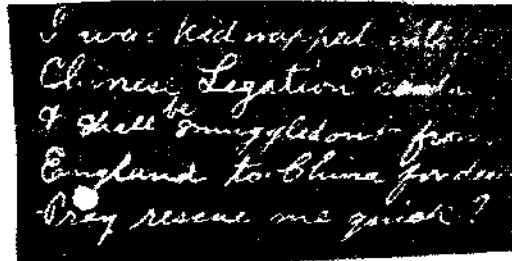 I was kidnapped into
Chinese Legation on
& shall be smuggled out from
England to China for
Pray rescue me quick!